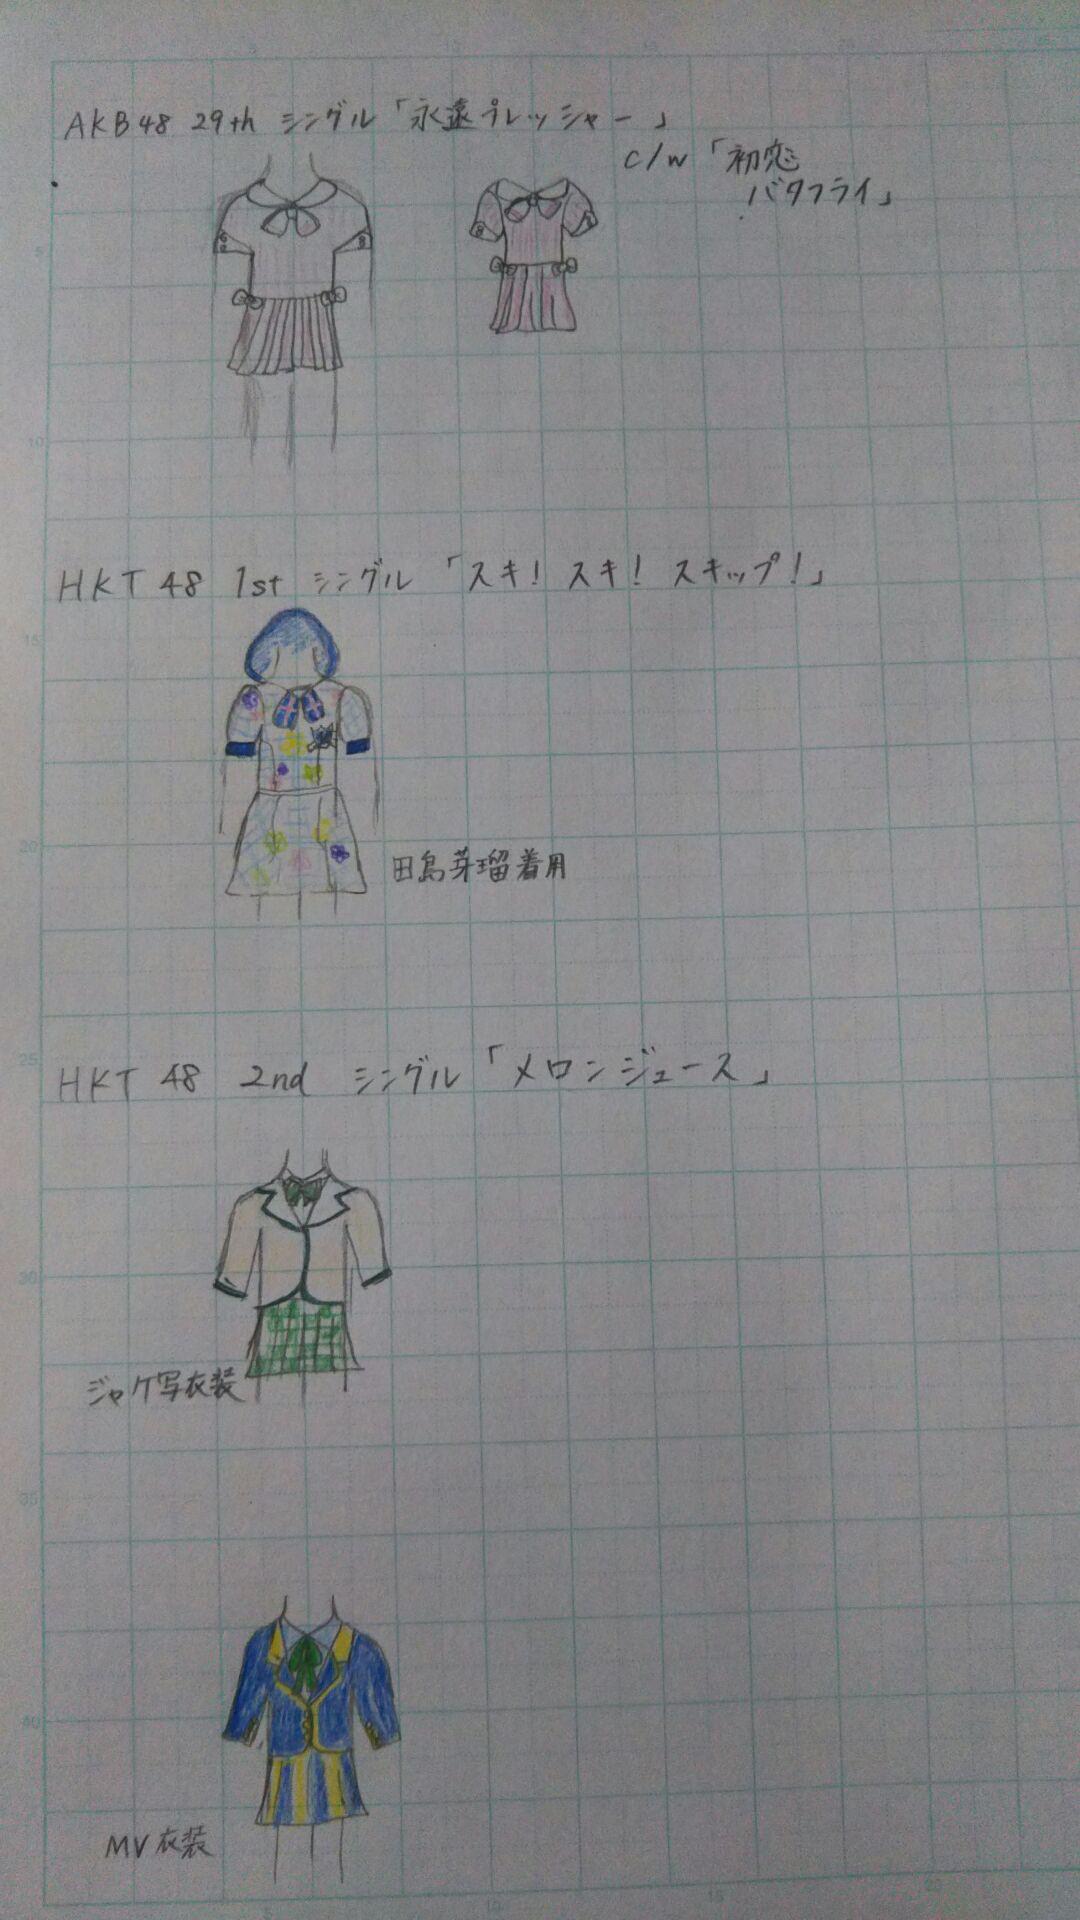 AKB48 29th シングル「永遠プレッシャー」
c/w「初恋
バタフライ」
HKT48 1st シングル「スキ！スキ！スキップ！」
田島芽瑠着用
HKT48 2nd シングル「メロンジュース」
ジャケ写衣装
MV衣装